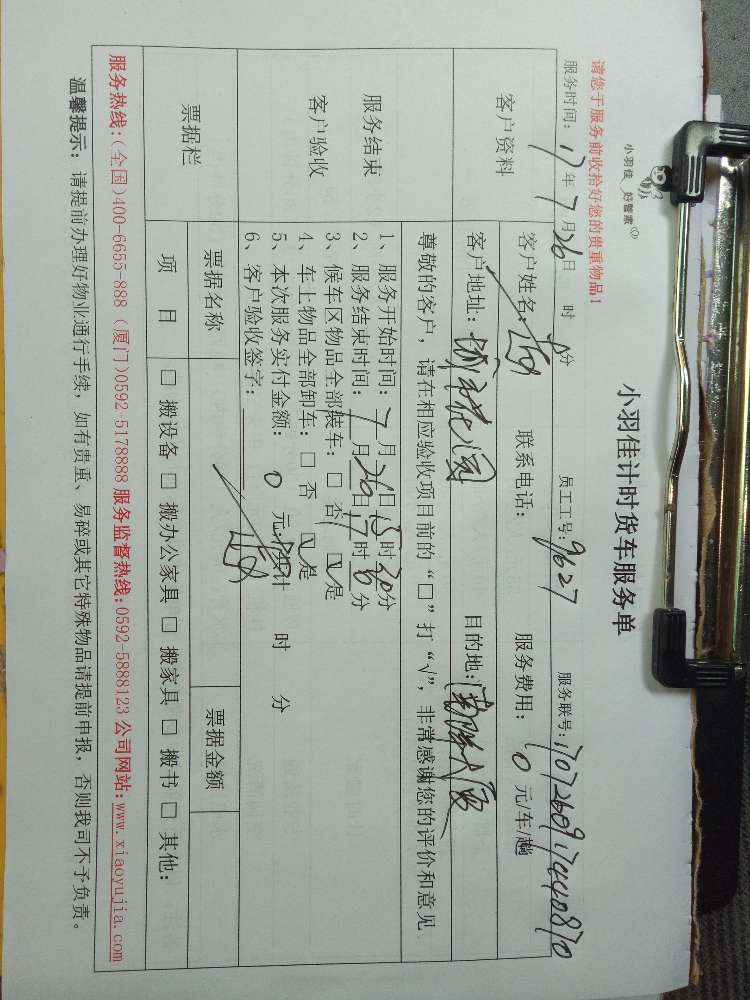 小羽佳 好管家
小羽佳计时货车服务单
请您于服务前收拾好您的贵重物品！
服务时间：17年7月26日 时 分 员工工号：9627 服务联号：
客户资料
客户姓名： 联系电话： 服务费用：0元/车/趟
客户地址： 目的地：
服务结束
客户验收
尊敬的客户，请在相应验收项目前的“□”打“√”，非常感谢您的评价和意见
1、服务开始时间：7月26日15时30分
2、服务结束时间：7月26日17时 分
3、候车区物品全部装车：□ 否 ☑ 是
4、车上物品全部卸车：□ 否 ☑ 是
5、本次服务实付金额：0元；共计 时 分
6、客户验收签字：
票据栏
票据名称 票据金额
项 目 □ 搬设备 □ 搬办公家具 □ 搬家具 □ 搬书 □ 其他：
服务热线：（全国）400-6655-888（厦门）0592-5178888 服务监督热线：0592-5888123 公司网站：www.xiaoyujia.com
温馨提示：请提前办理好物业通行手续，如有贵重、易碎或其它特殊物品请提前申报，否则我司不予负责。